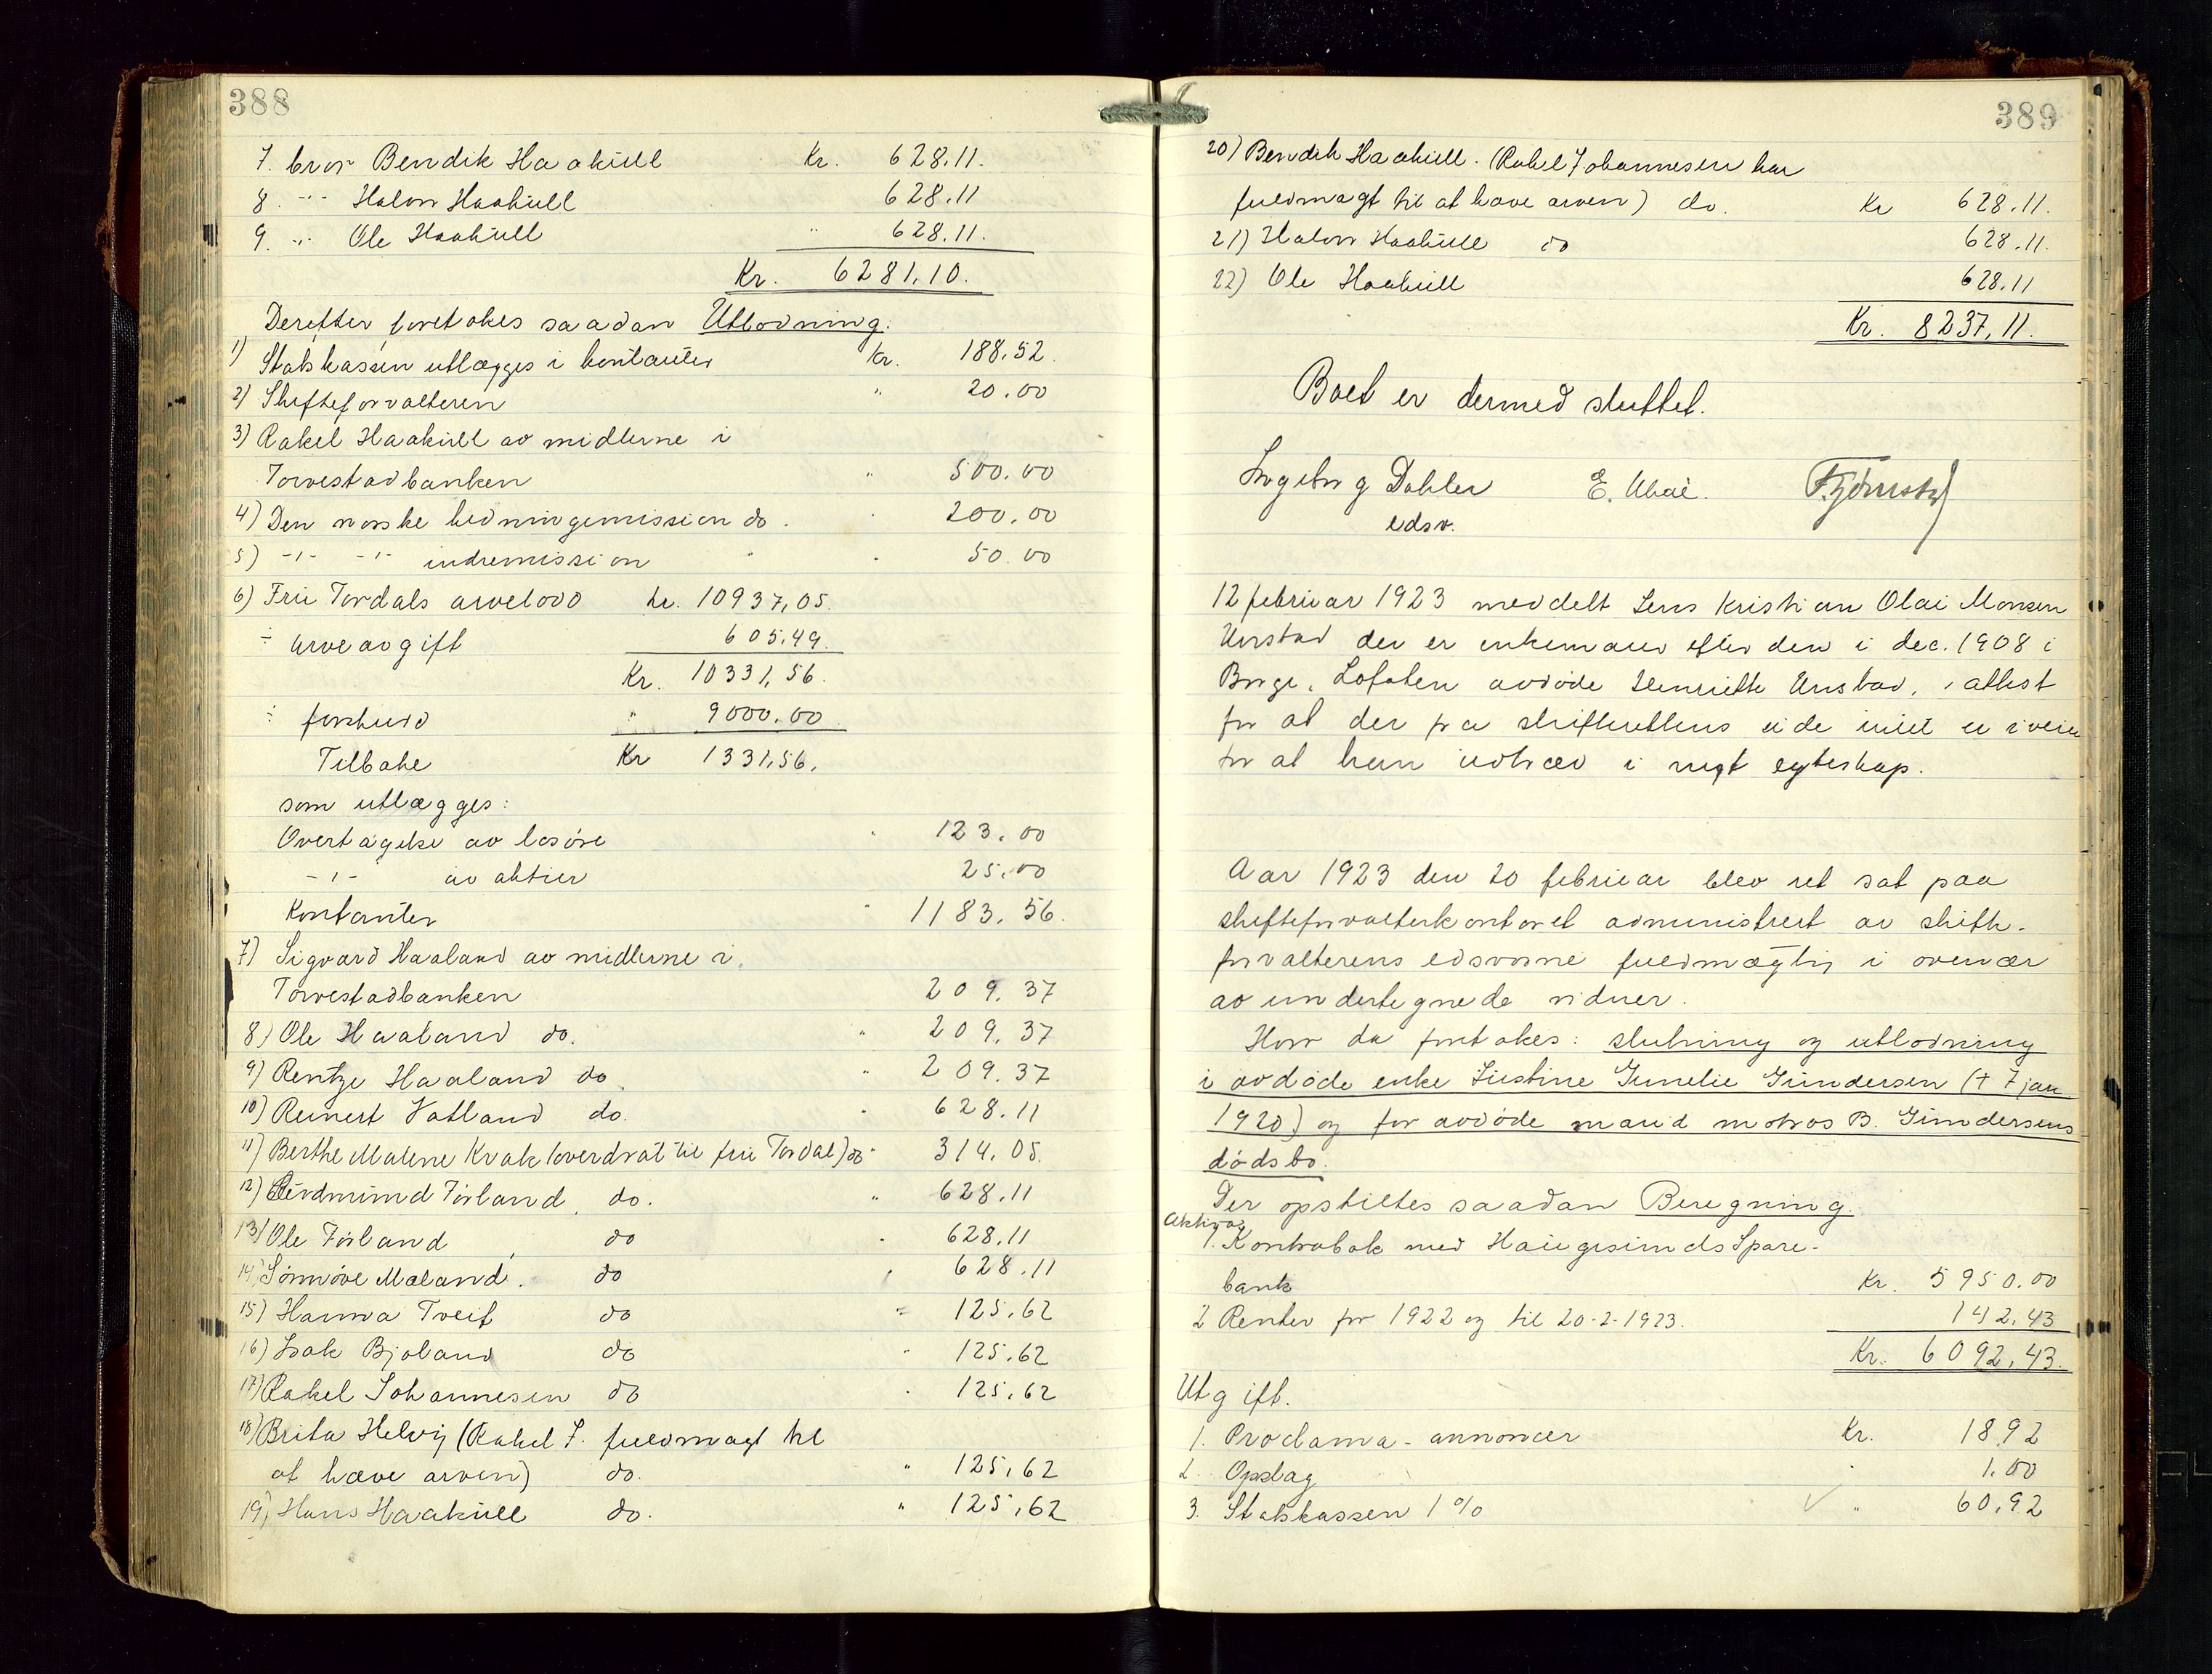 388
7. bror Bendik Haakull Kr. 628.11.
8. -"- Halvor Haakull 628.11
9. -"- Ole Haakull " 628.11.
Kr. 6281.10.
Derefter foretokes saadan Utlodning:
1) Statskassen utlægges i kontanter kr. 188.52.
2) Skifteforvalteren " 20.00
3) Rakel Haakull av midlerne i
Torvestadbanken " 500.00
4) Den norske hedningemission do. " 200.00
5) -"- -"- indremission " " 50.00
6) Fru Tordals arvelodd kr. 10937,05.
÷ arveavgift 605.49.
Kr. 10331,56.
÷ forskudd " 9000.00.
Tilbake Kr 1331,56.
som utlægges:
Overtagelse av løsøre " 123.00
-"- av aktier 25.00
Kontanter " 1183.56.
7) Sigvard Haaland av midlerne i
Torvestadbanken 209.37
8) Ole Haaland do. " 209.37
9) Rentze Haaland do. " 209.37
10) Reinert Vatland do. " 628.11
11) Berthe Malene Kvak (overdrat til fru Tordal) do " 314.05.
12) Gudmund Førland. do. " 628.11
13) Ole Førland do " 628.11
14) Sønnøve Mæland. do " 628.11
15) Hanna Tveit do " 125.62
16) Isak Bjoland do " 125.62
17) Rakel Johannesen do " 125.62
18) Brita Helvig (Rakel J. fuldmagt til
at hæve arven) do. " 125.62
19) Hans Haakull do. " 125.62
389
20) Bendik Haakull. (Rakel Johannesen har
fuldmagt til at hæve arven) do. Kr 628.11.
21) Halvor Haakull do 628.11.
22) Ole Haakull 628.11
Kr. 8237,11.
Boet er dermed sluttet.
Ingeborg Dahler E.
edsv.
12 februar 1923 meddelt Jens Kristian Olai Monsen
Unstad der er enkemand efter den i dec. 1908 i
Borge, Lofoten avdøde Henriette Unstad, attest
for at der fra skifterettens side intet er i veien
for at han indtræd i nyt egteskap.
Aar 1923 den 20 februar blev ret sat paa
skifteforvalterkontoret administrert av skifte-
forvalterens edsvorne fuldmægtig i overvær
av undertegnede vidner.
Hvor da foretokes: slutning og utlodning
i avdøde enke Justine Gunelie Gundersen († 7 jan
1920) og før avdøde mand matros B. Gundersens
dødsbo.
Der opstilles saadan Beregning.
Aktiva:
1. Kontrabok med Haugesunds Spare-
bank Kr. 5950.00
2 Renter for 1922 og til 20-2-1923. 142.43
Kr. 6092,43.
Utgift.
1. Proclama-annoncer Kr. 18.92
2. Opslag " 1.00
3. Statskassen 1% " 60.92